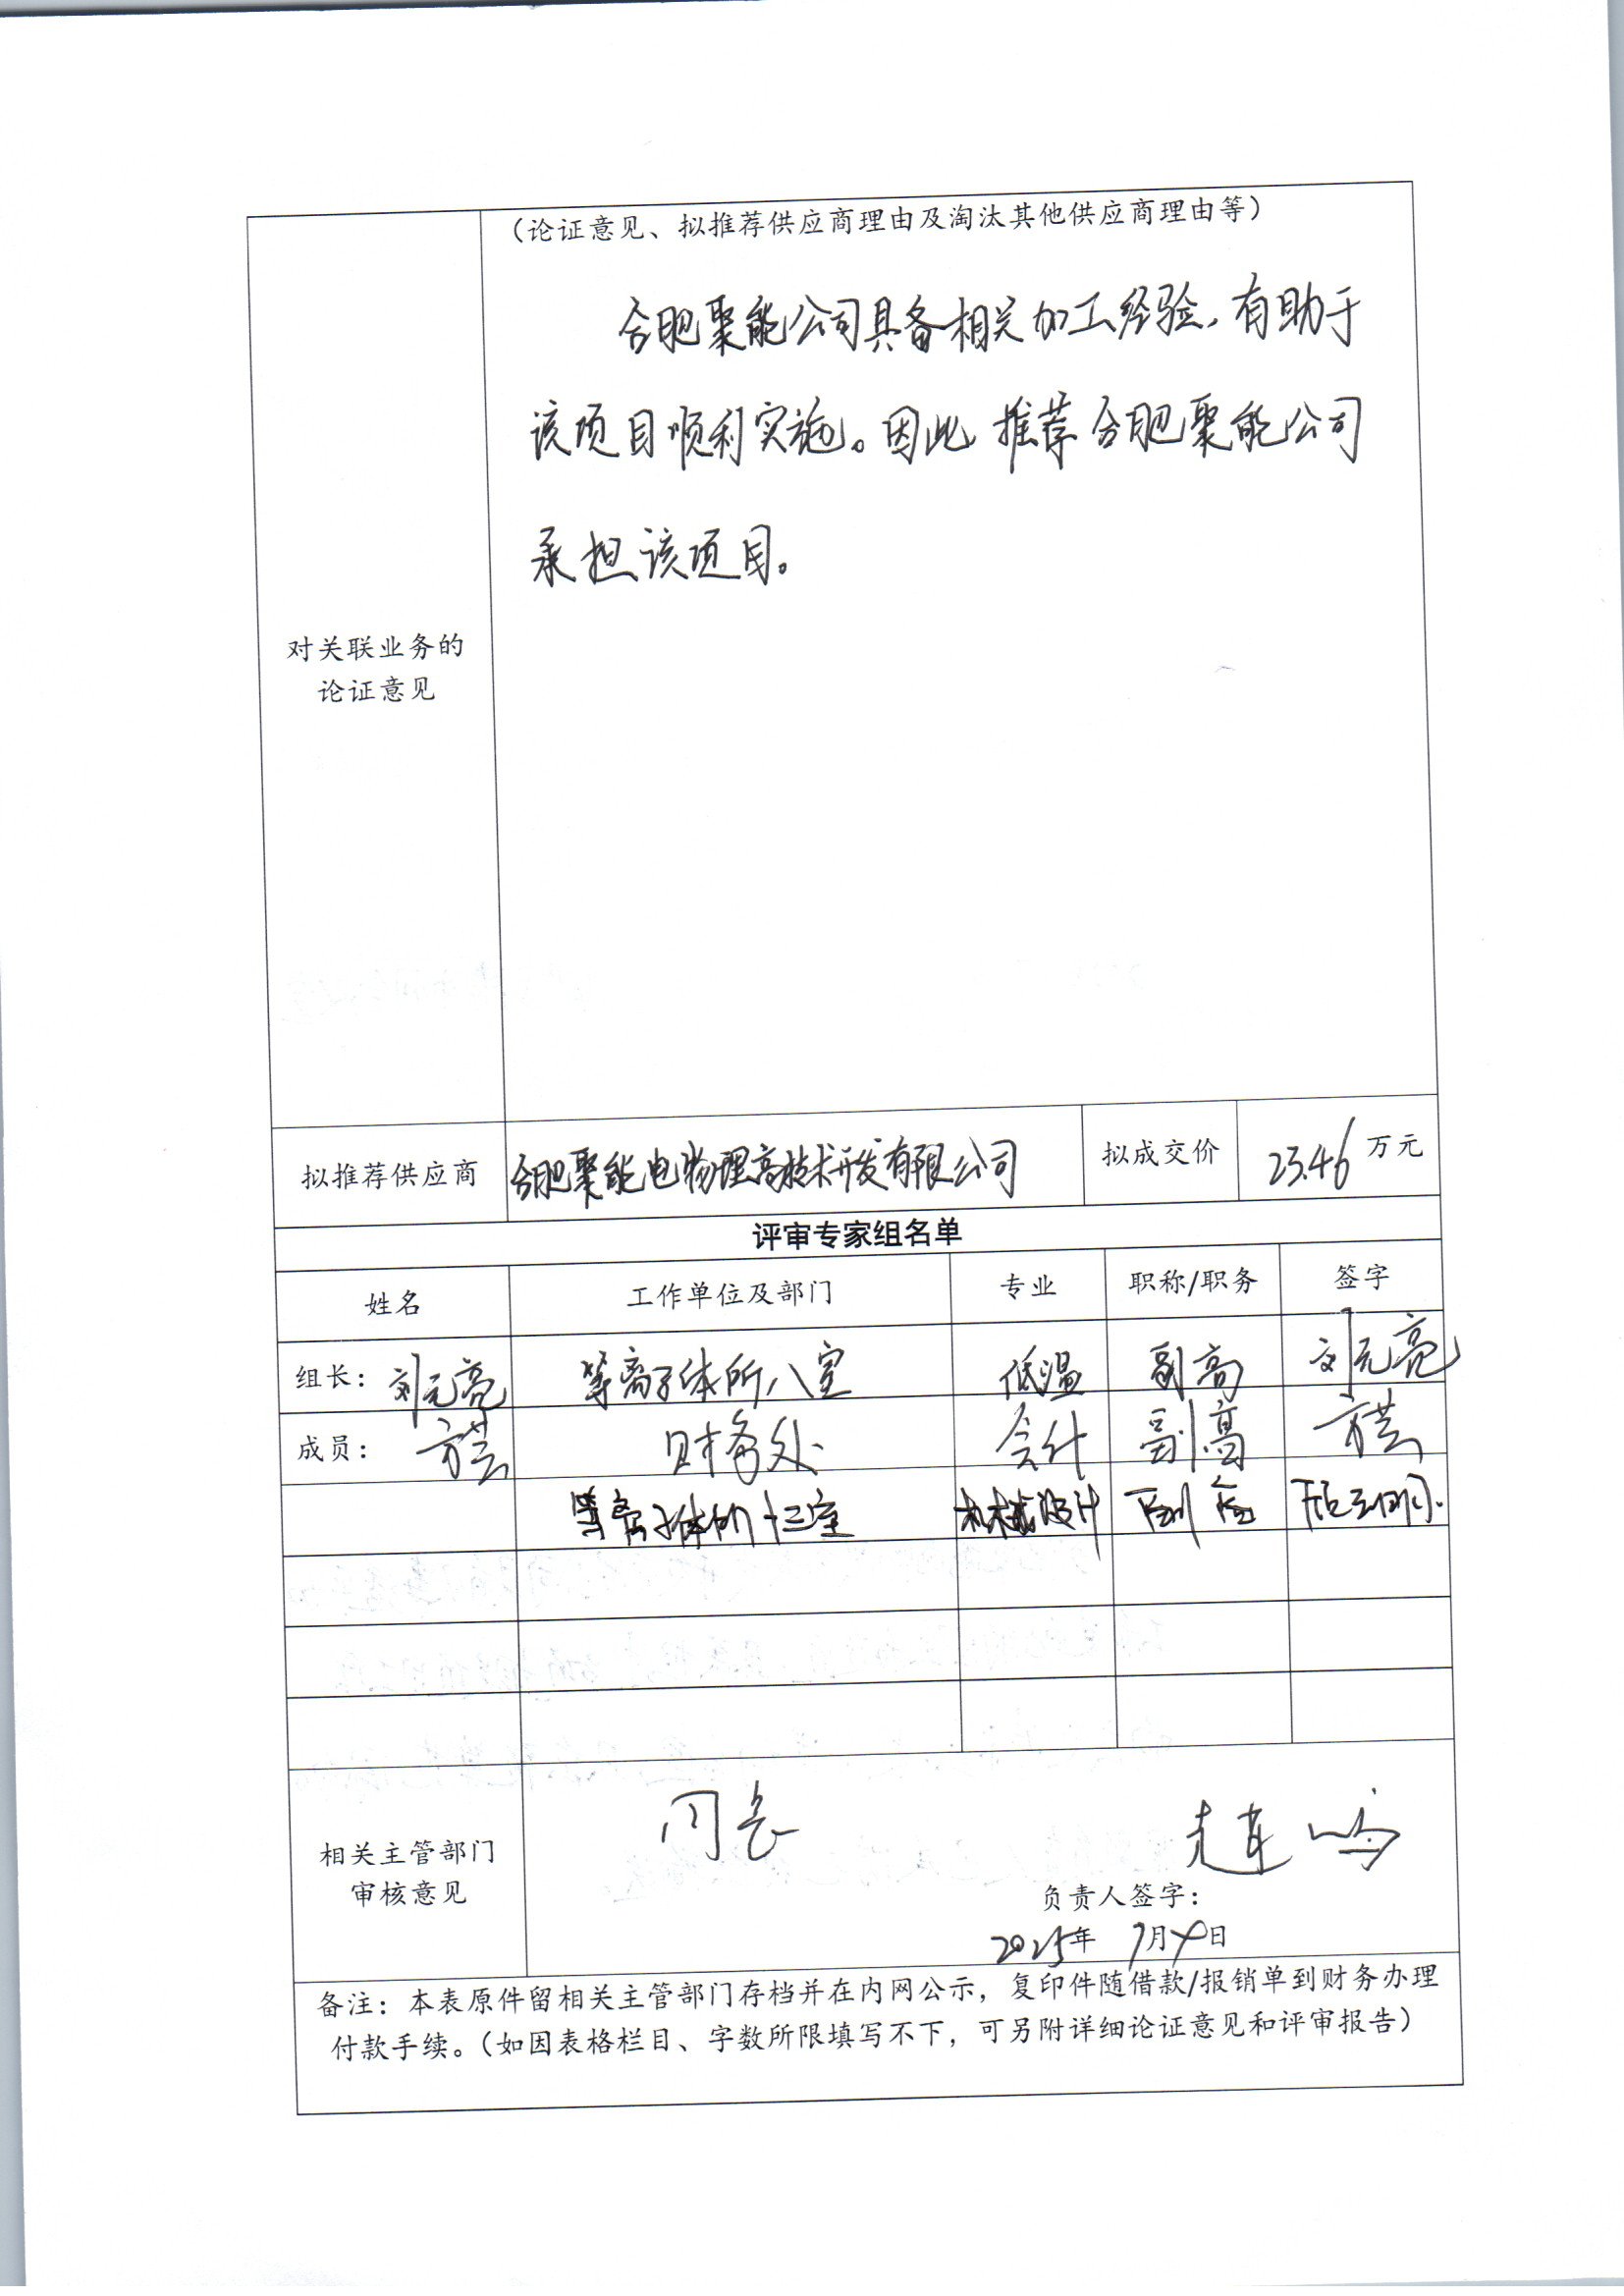 （论证意见、拟推荐供应商理由及淘汰其他供应商理由等）
合肥聚能公司具备相关加工经验，有助于
该项目顺利实施。因此推荐合肥聚能公司
承担该项目。
对关联业务的
论证意见
拟推荐供应商 合肥聚能电物理高技术开发有限公司 拟成交价 23.46 万元
评审专家组名单
姓名 工作单位及部门 专业 职称/职务 签字
组长：刘元亮 等离子体所八室 低温 副高 刘元亮
成员： 财务处 会计 副高
等离子体所十三室 机械设计 副高
相关主管部门
审核意见
同意
负责人签字：
2025年 月 日
备注：本表原件留相关主管部门存档并在内网公示，复印件随借款/报销单到财务办理
付款手续。（如因表格栏目、字数所限填写不下，可另附详细论证意见和评审报告）